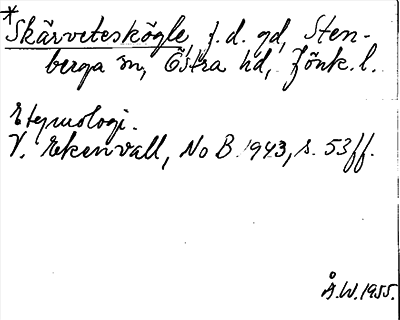 *Skärveteskögle, f.d. gd, Sten-
berga sn, Östra hd, Jönk. l.
Etymologi.
V. Ekenvall, NoB 1943, s. 53 ff.
Å.W. 1955.